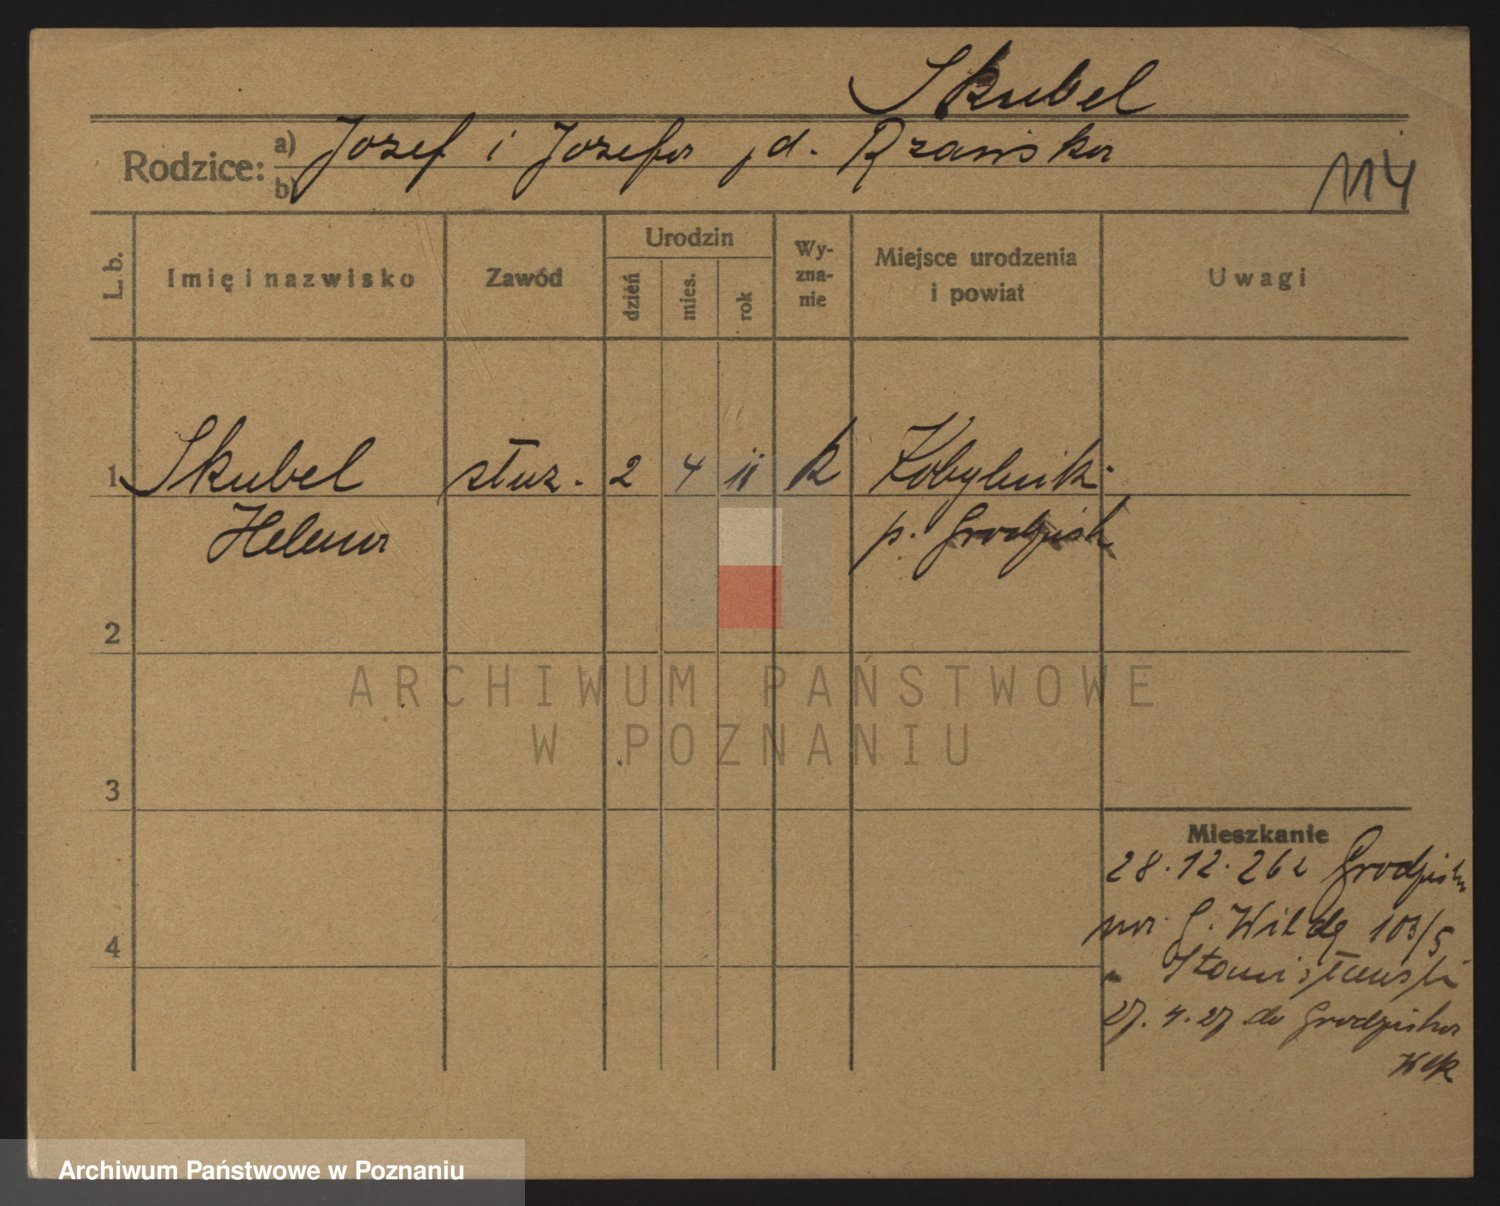 Skubel
Rodzice: a) Józef i Józefa, d. Rzańska
b)
114
L. b.
Imię i nazwisko
Zawód
Urodzin
dzień
mies.
rok
Wy-
zna-
nie
Miejsce urodzenia
i powiat
Uwagi
1 Skubel służ. 2 4 11 k Kobylnik
Helena p. Grodzisk
2
3
4
Mieszkanie
28.12.26 z Grodziska
na G. Wildę 103/5
" Stanisławski
27.4.27 do Grodziska
ARCHIWUM PAŃSTWOWE
W POZNANIU
Archiwum Państwowe w Poznaniu